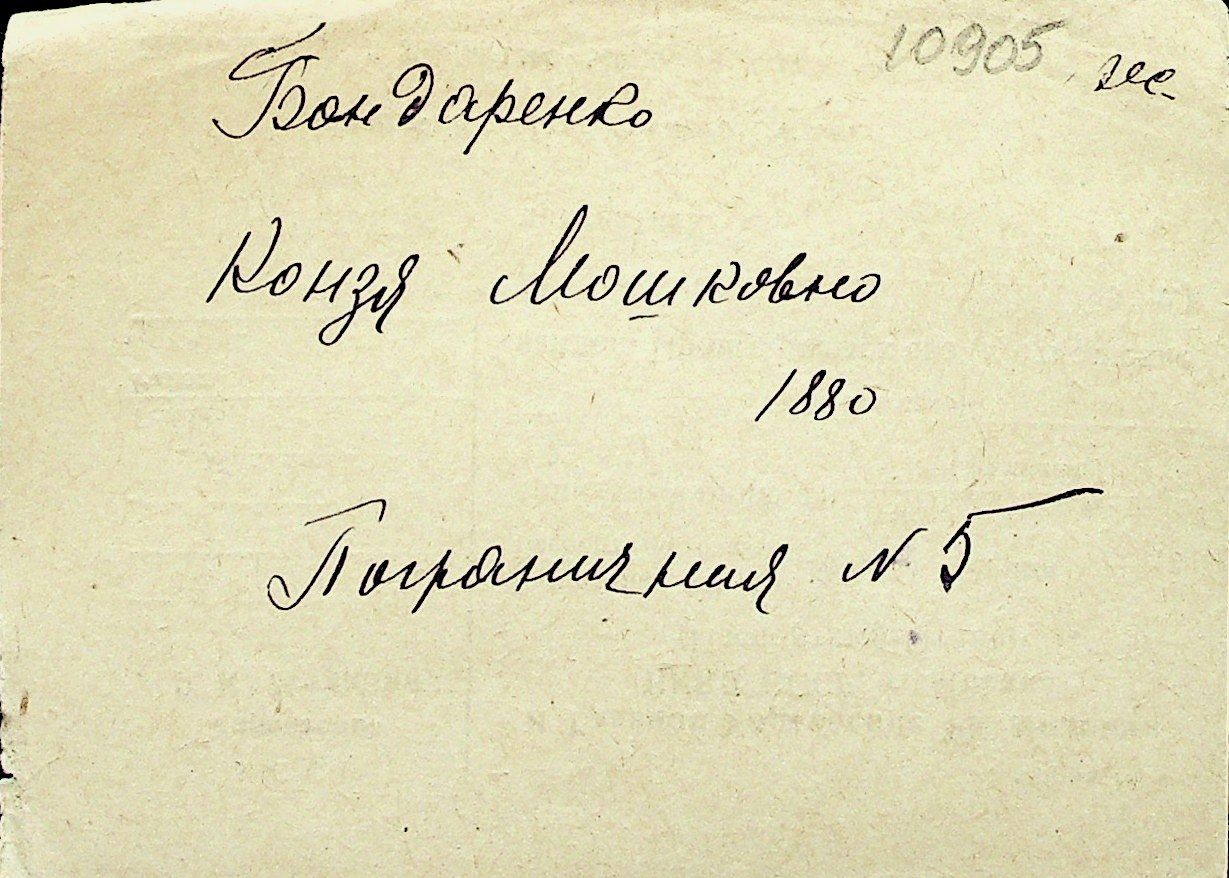 10905 же.
Бондаренко
Конзя Мошковно
1880
Пограничная N 5